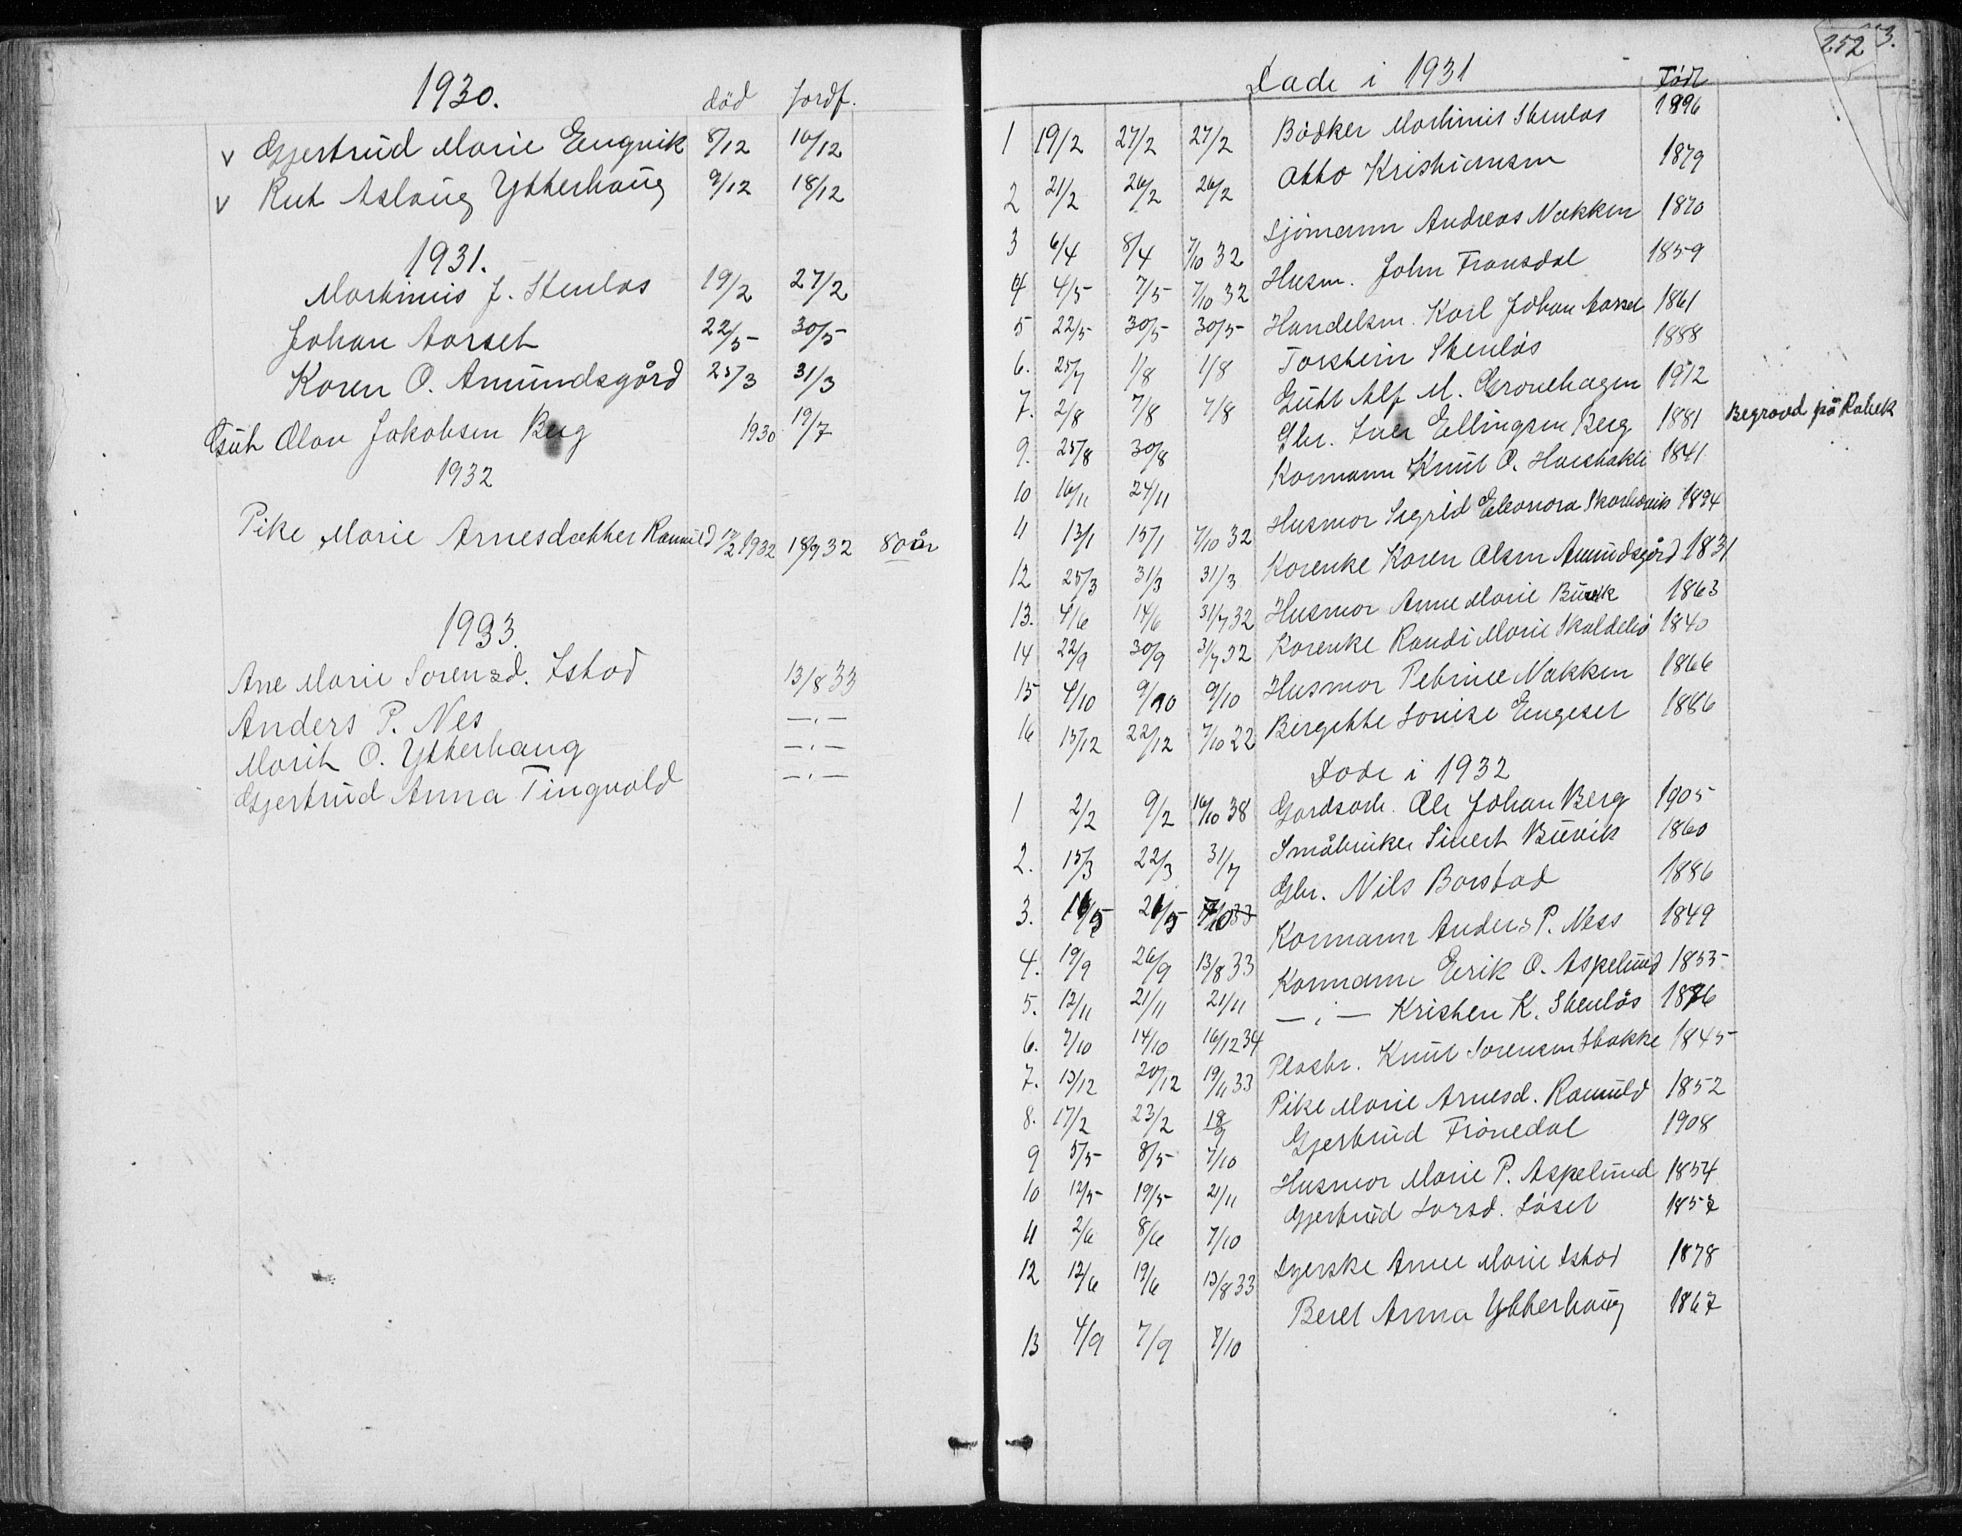 1930. død Jordf.
v Gjertrud Marie Engvik 8/12 16/12
v Rut Aslaug Ytterhaug 9/12 18/12
1931.
Martinus J. Stenløs 19/2 27/2
Johan Aarset 22/5 30/5
Karen O. Amundsgård 25/3 31/3
Gut Olav Jakobsen Berg 1930 19/7
1932
Pike Marie Arnesdatter Ramuld 17/2 1932 18/9 32 80 år
1933.
Ane Marie Sørensd. Istad 13/8 33
Anders P. Nes —„—
Marit O. Ytterhaug —„—
Gjertrud Anna Tingvold —„—
252 3.
Døde i 1931 Født
1 19/2 27/2 27/2 Bødker Martinus Stenløs 1896
2 21/2 26/2 26/2 Otto Kristiansen 1879
3 6/4 8/4 7/10 32 Sjømann Andreas Nakken 1870
4 4/5 7/5 7/10 32 Husm. John Fransdal 1859
5 22/5 30/5 30/5 Handelsm. Karl Johan Aarset 1861
6. 25/7 1/8 1/8 Torstein Stenløs 1888
7. 2/8 7/8 7/8 Gutt Alf M. Gronehagen 1912
9. 25/8 30/8 Gbr. Iver Ellingsen Berg 1881 Begravd på Rakek
10 16/11 24/11 Kårmann Knut O. 1841
11 13/1 15/1 7/10 32 Husmor Sigrid Eleonora 1894
12 25/3 31/3 31/3 Kårenke Karen Olsen Amundsgård 1831
13. 4/6 14/6 31/7 32 Husmor Anne Marie Buvik 1863
14 22/9 30/9 31/7 32 Kårenke Randi Marie 1840
15 4/10 9/10 9/10 Husmor Petrine Nakken 1866
16 15/12 22/12 7/10 22 Bergitte Lovise Engeset 1886
Døde i 1932
1 2/2 9/2 16/10 38 Gardsarb. Ole Johan Berg 1905
2. 15/3 22/3 31/7 Småbruker Sivert Buvik 1860
3. 16/5 26/5 Gbr. Nils Barstad 1886
4. 19/9 26/9 13/8 33 Kårmann Anders P. Ness 1849
5. 12/11 21/11 21/11 Kårmann Eirik O. Aspelund 1853
6. 7/10 14/10 16/12 34 —„— Kristen K. Stenløs 1876
7. 13/12 20/12 19/11 33 Plasbr. Knut Sørensen Stokke 1845
8. 17/2 23/2 18/9 Pike Marie Arnesd. Ramuld 1852
9 5/5 8/5 7/10 Gjertrud Fronedal 1908
10 12/5 19/5 21/11 Husmor Marie P. Aspelund 1854
11 2/6 8/6 7/10 Gjertrud Larsd. Løset 1857
12 12/6 19/6 13/8 33 Syerske Anne Marie Istad 1878
13 4/9 7/9 7/10 Beret Anna Ytterhaug 1867